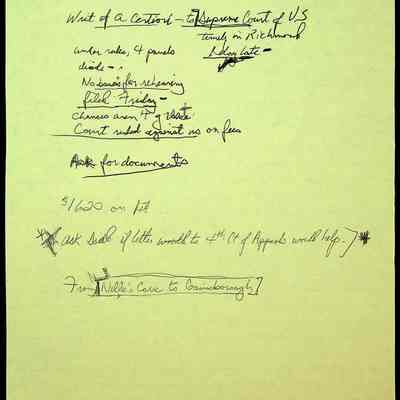 Writ of A Certiori - to Supreme Court of US
timely in Richmond
under rules, 4 panels
divide -
No basis for rehearing
filed Friday -
Chances aren't g
Court ruled against us on fees
Ask for documents
$1620 on
ask if letter would to 4th Ct of Appeals would help.
From Nellie's Cave to Gainsborough